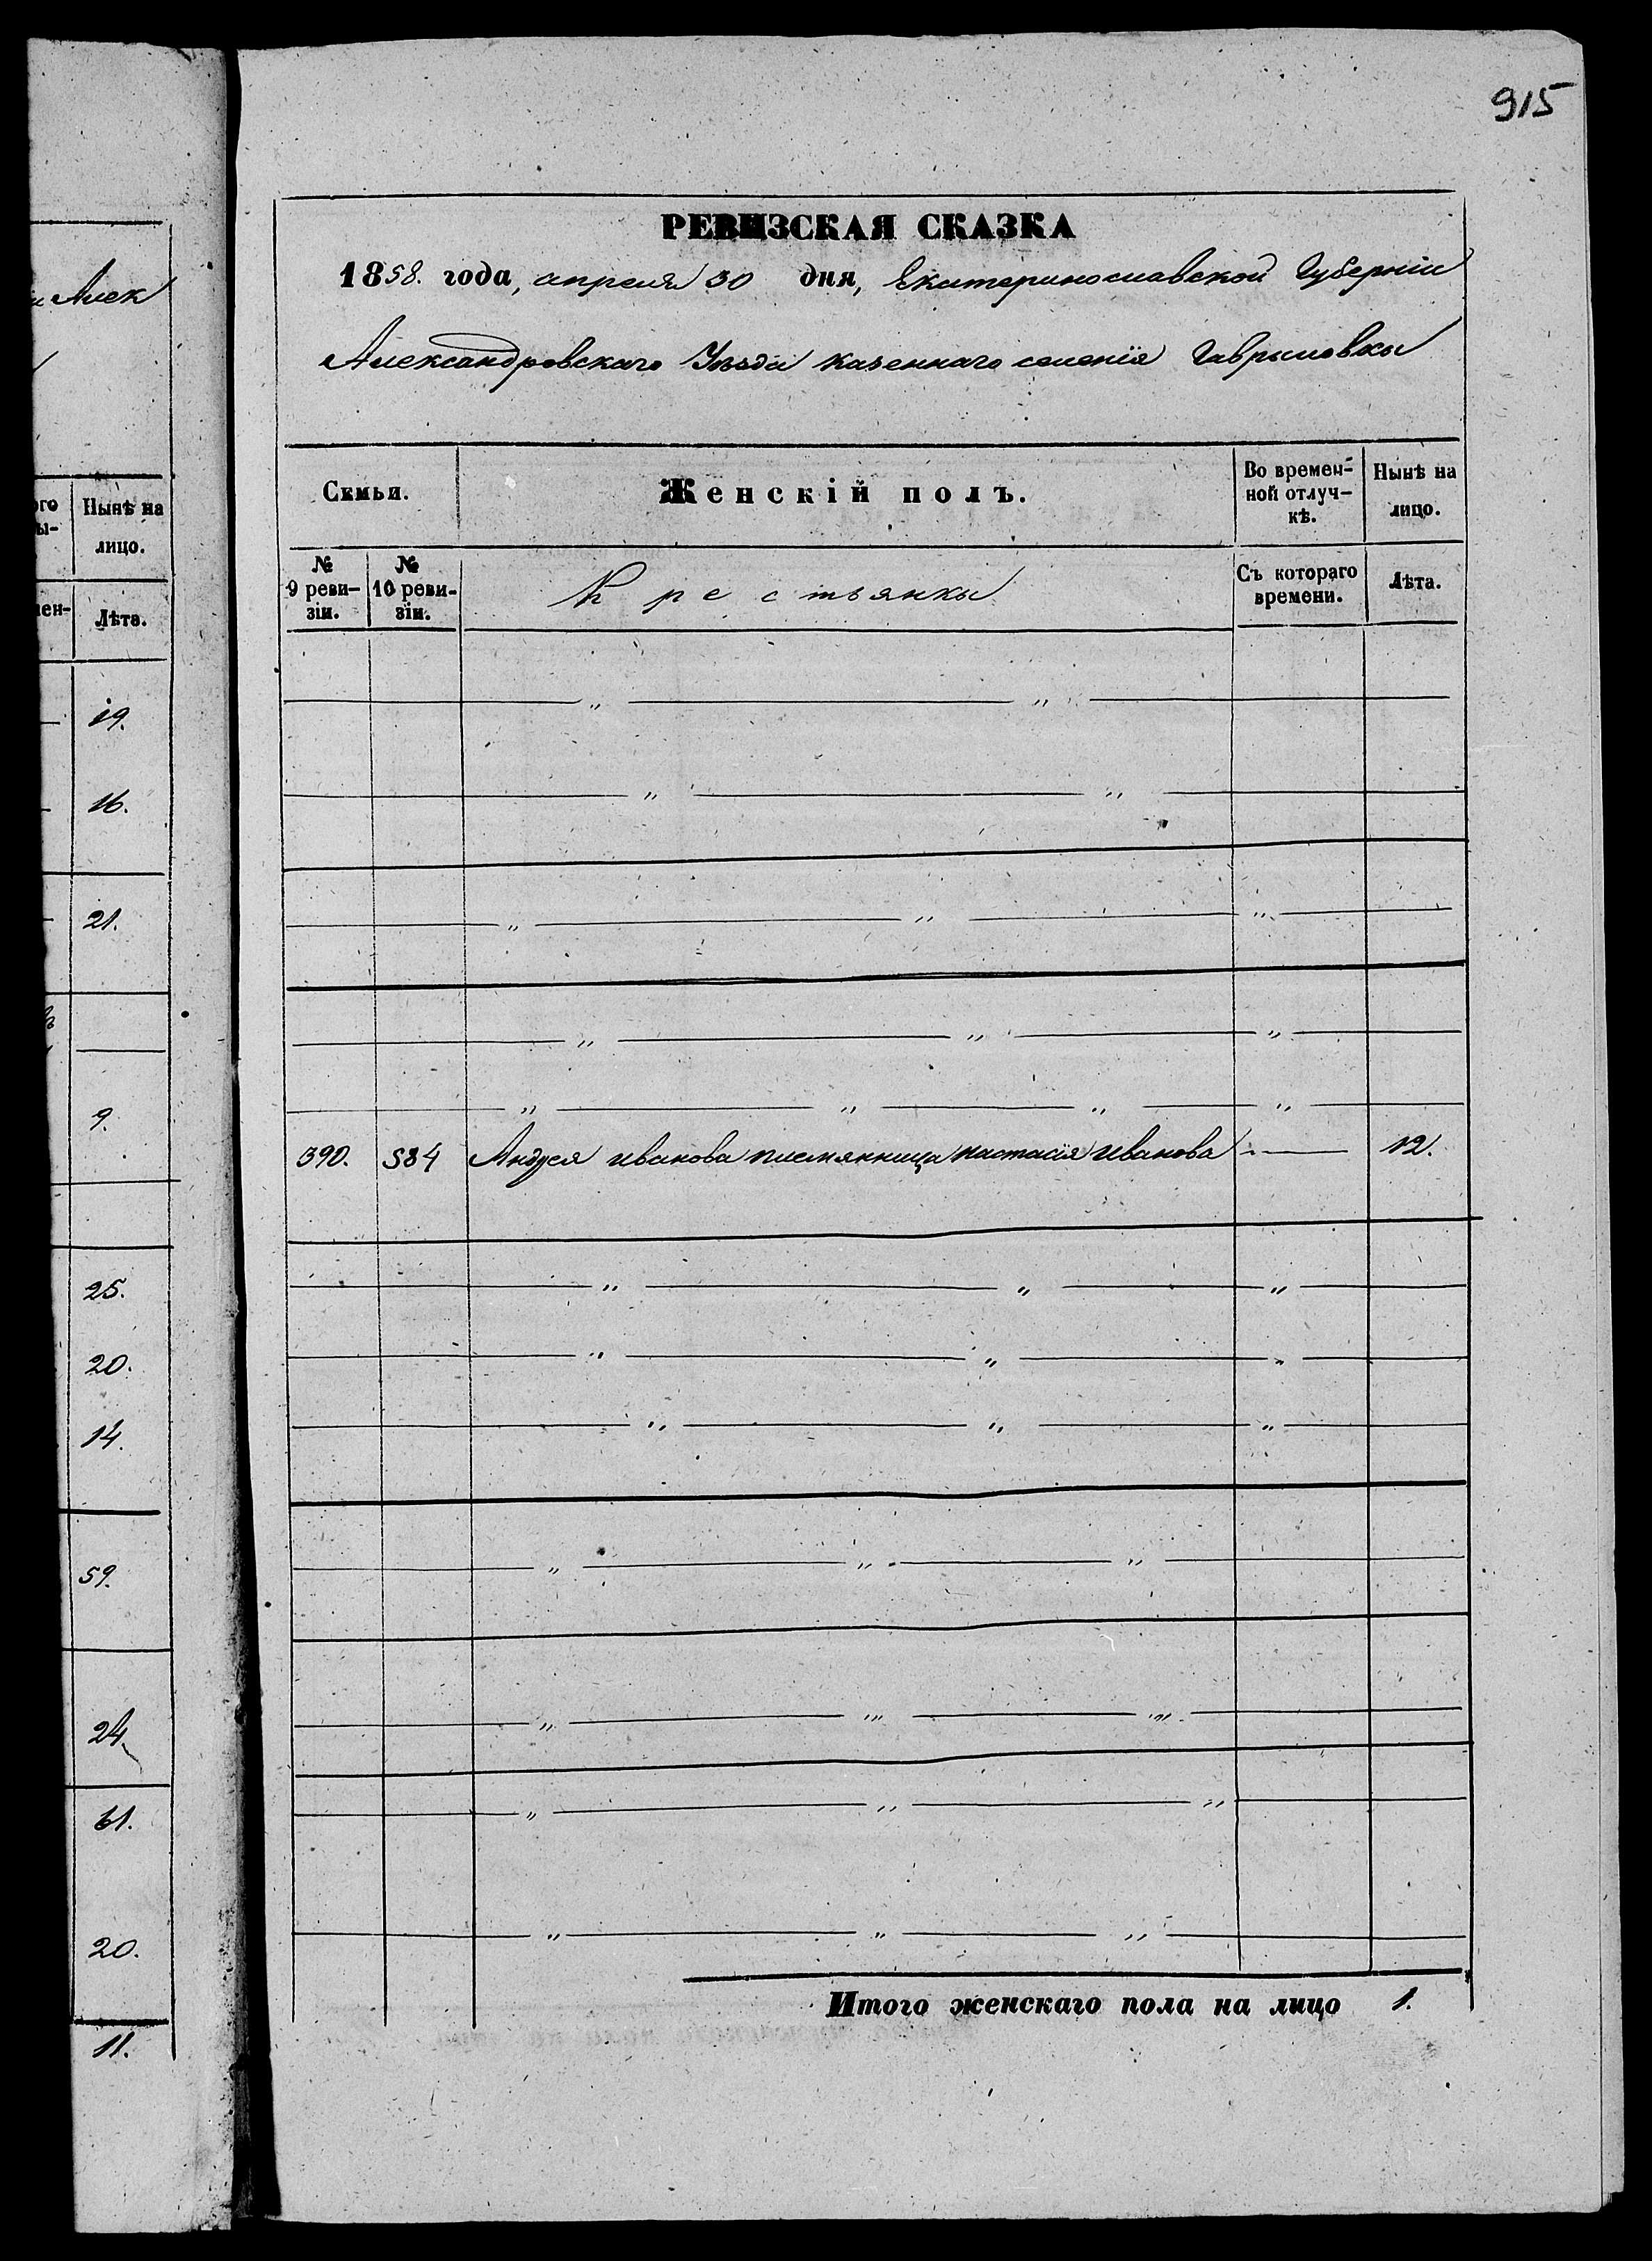 915
РЕВИЗСКАЯ СКАЗКА
1858. года, апреля 30 дня, Екатеринославской Губерніи
Александровскаго Уѣзда казеннаго селенія Гавриловки
Семьи.
Женскій полъ.
Во времен-
ной отлуч-
кѣ.
Нынѣ на
лицо.
№
9 реви-
зіи.
№
10 реви-
зіи.
Крестьянки
Съ котораго
времени.
Лѣта.
390. 584 Иванова племянница настасія Иванова 12.
Итого женскаго пола на лицо 1.
Алек
ого
ы-
Нынѣ на
лицо.
мен-
Лѣта.
19.
16.
21.
9.
25.
20.
14.
59.
24.
61.
20.
11.